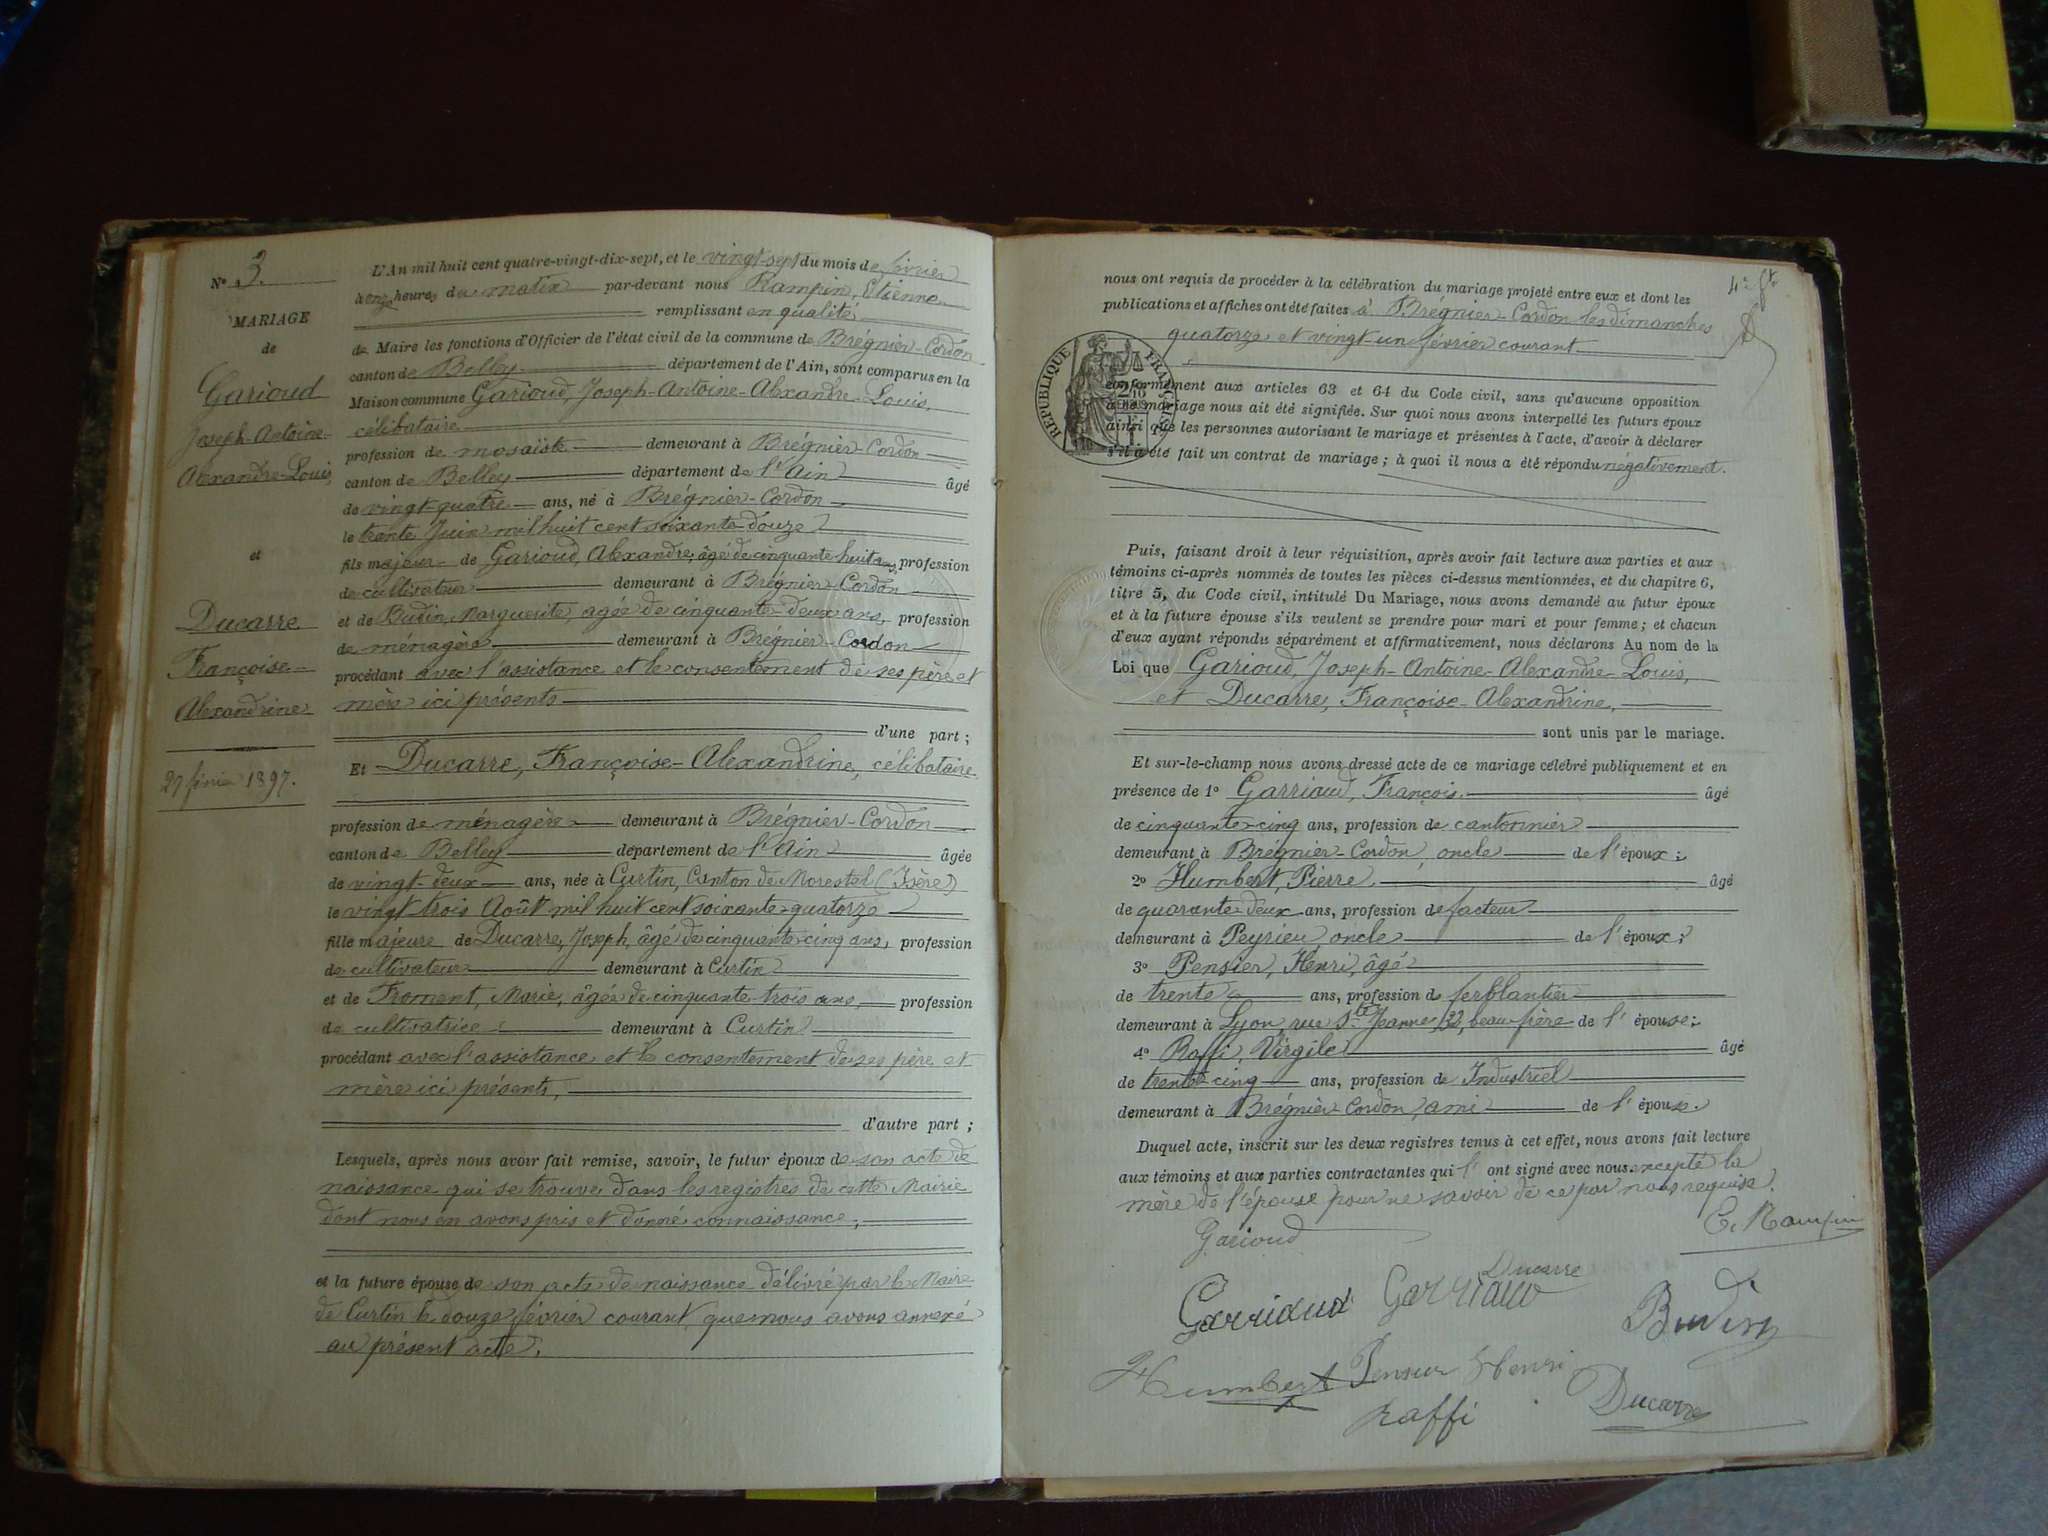 N° 3.
MARIAGE
de
Garioud
Joseph-Antoine-
Alexandre-Louis,
et
Ducarre
Françoise-
Alexandrine
27 février 1897.
L'An mil huit cent quatre-vingt-dix-sept, et le vingt-sept du mois de février
à onze heures du matin par-devant nous Rampin, Etienne
remplissant en qualité
de Maire les fonctions d'Officier de l'état civil de la commune de Brégnier-Cordon
canton de Belley département de l'Ain, sont comparus en la
Maison commune Garioud, Joseph-Antoine-Alexandre-Louis,
célibataire
profession de mosaïste demeurant à Brégnier-Cordon
canton de Belley département de l'Ain âgé
de vingt-quatre ans, né à Brégnier-Cordon
le trente Juin mil huit cent soixante-douze
fils majeur de Garioud, Alexandre, âgé de cinquante huit ans, profession
de cultivateur demeurant à Brégnier-Cordon
et de Budin, Marguerite, agée de cinquante-deux ans, profession
de ménagère demeurant à Brégnier-Cordon
procédant avec l'assistance et le consentement de ses père et
mère ici présents
d'une part ;
Et Ducarre, Françoise-Alexandrine, célibataire
profession de ménagère demeurant à Brégnier-Cordon
canton de Belley département de l'Ain âgée
de vingt-deux ans, née à Curtin, Canton de Morestel (Isère)
le vingt trois Août mil huit cent soixante-quatorze
fille majeure de Ducarre, Joseph, âgé de cinquante-cinq ans, profession
de cultivateur demeurant à Curtin
et de Froment, Marie, âgée de cinquante-trois ans, profession
de cultivatrice demeurant à Curtin
procédant avec l'assistance et le consentement de ses père et
mère ici présents,
d'autre part ;
Lesquels, après nous avoir fait remise, savoir, le futur époux de son acte de
naissance qui se trouve dans les registres de cette Mairie
dont nous en avons pris et donné connaissance,
et la future épouse de son acte de naissance délivré par le Maire
de Curtin le douze février courant, que nous avons annexé
au présent acte.
nous ont requis de procéder à la célébration du mariage projeté entre eux et dont les
publications et affiches ont été faites à Brégnier-Cordon les dimanches
quatorze et vingt-un février courant
RÉPUBLIQUE FRANÇAISE
conformément aux articles 63 et 64 du Code civil, sans qu'aucune opposition
à ce mariage nous ait été signifiée. Sur quoi nous avons interpellé les futurs époux
ainsi que les personnes autorisant le mariage et présentes à l'acte, d'avoir à déclarer
s'il a été fait un contrat de mariage ; à quoi il nous a été répondu négativement.
Puis, faisant droit à leur réquisition, après avoir fait lecture aux parties et aux
témoins ci-après nommés de toutes les pièces ci-dessus mentionnées, et du chapitre 6,
titre 5, du Code civil, intitulé Du Mariage, nous avons demandé au futur époux
et à la future épouse s'ils veulent se prendre pour mari et pour femme ; et chacun
d'eux ayant répondu séparément et affirmativement, nous déclarons Au nom de la
Loi que Garioud, Joseph-Antoine-Alexandre-Louis,
et Ducarre, Françoise-Alexandrine,
sont unis par le mariage.
Et sur-le-champ nous avons dressé acte de ce mariage célébré publiquement et en
présence de 1° Garriaud, François. âgé
de cinquante-cinq ans, profession de cantonnier
demeurant à Brégnier-Cordon, oncle de l'époux ;
2° Humbert, Pierre, âgé
de quarante-deux ans, profession de facteur
demeurant à Peyrieu, oncle de l'époux ;
3° Pensier, Henri, âgé
de trente ans, profession de ferblantier
demeurant à Lyon, rue Ste Jeanne, 32, beau-frère de l'épouse ;
4° Raffi, Virgile âgé
de trente-cinq ans, profession de Industriel
demeurant à Brégnier-Cordon, ami de l'époux.
Duquel acte, inscrit sur les deux registres tenus à cet effet, nous avons fait lecture
aux témoins et aux parties contractantes qui l'ont signé avec nous excepté la
mère de l'épouse pour ne savoir de ce par nous requise.
Garioud
E. Rampin
Ducarre
Garriaud Garriaud
Budin
Humbert Pensier Henri
Raffi
Ducarre